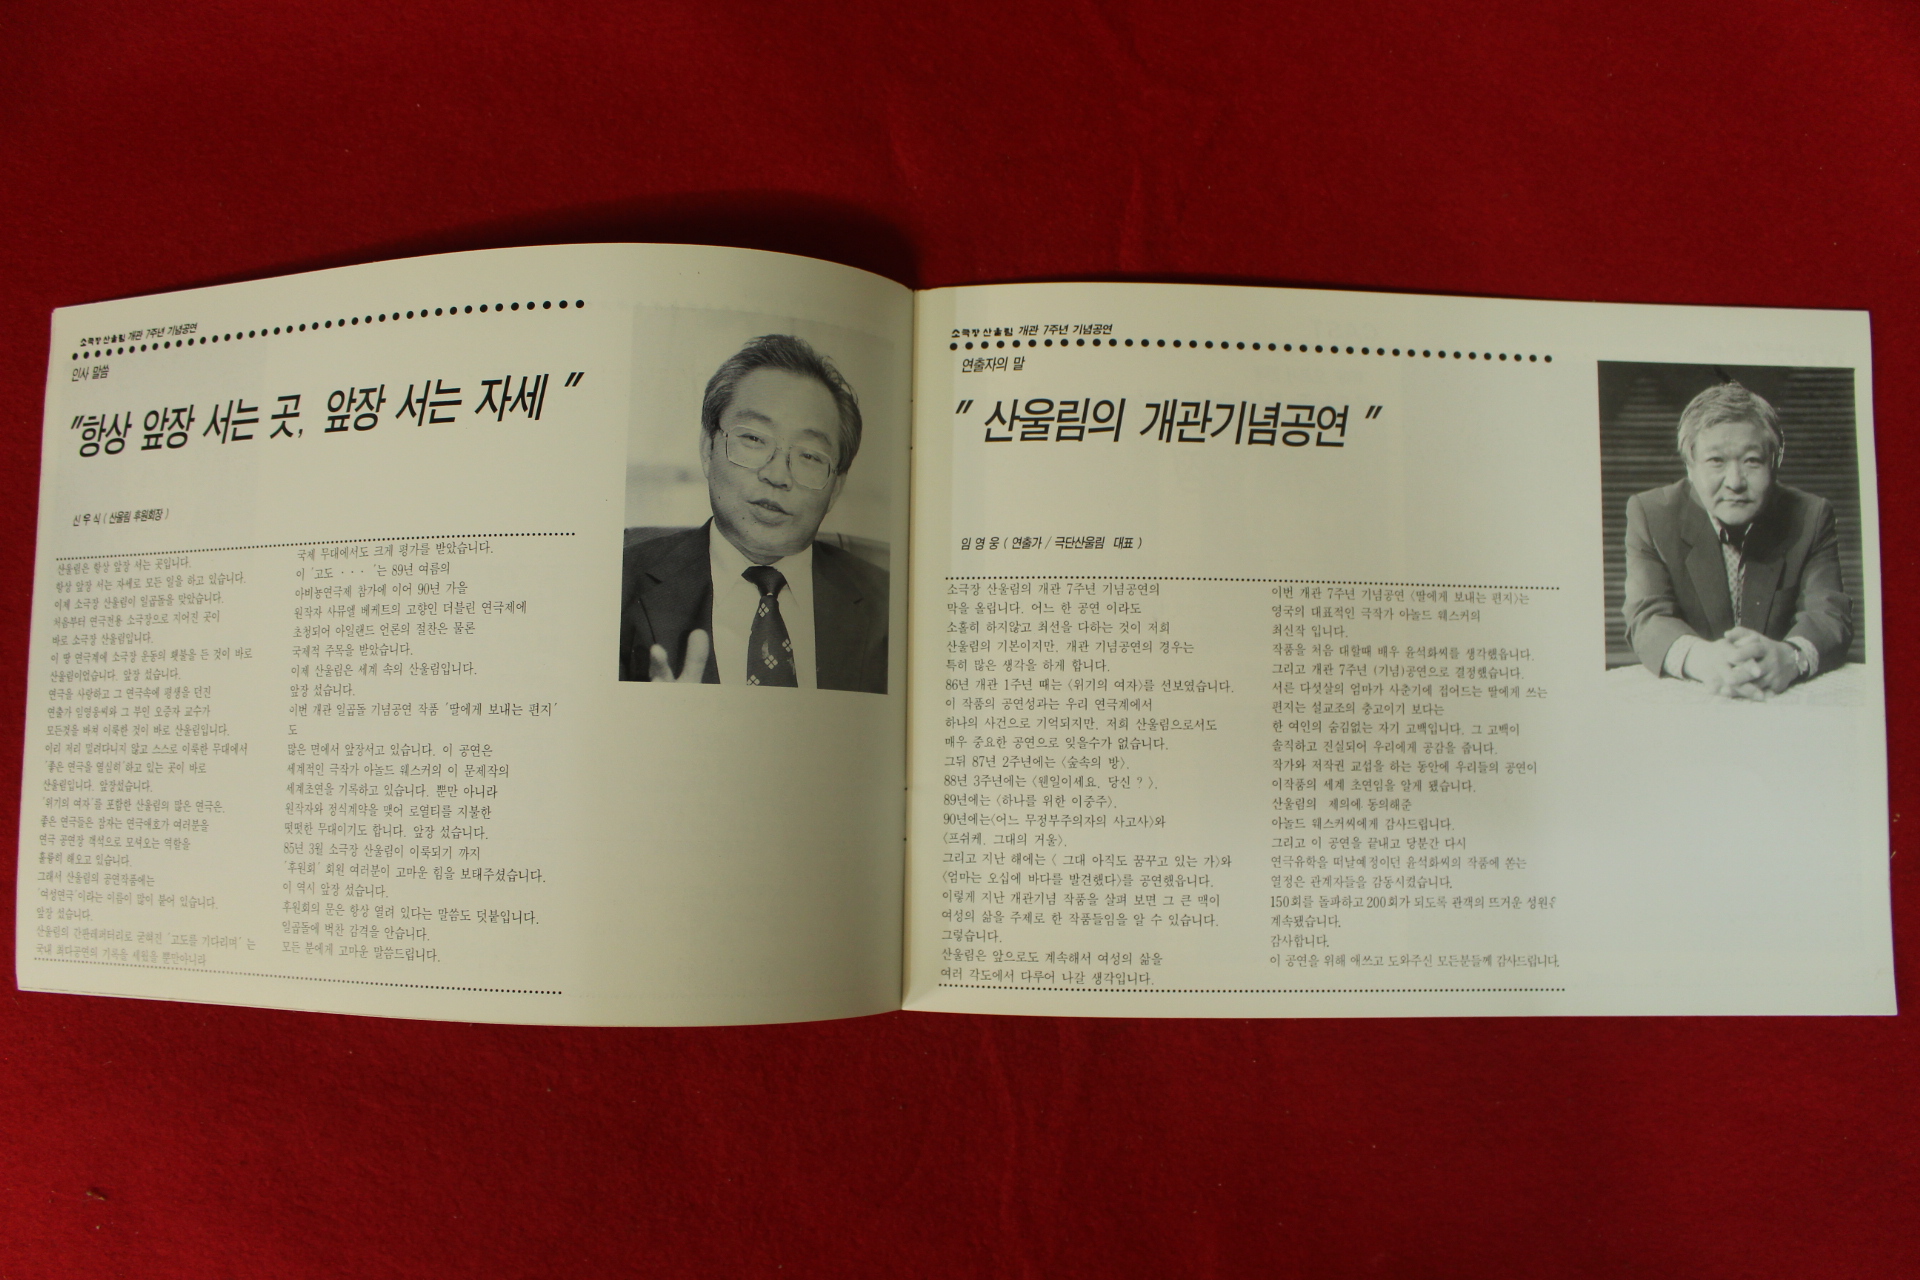 소극장 산울림 개관 7주년 기념공연
인사 말씀
"항상 앞장 서는 곳, 앞장 서는 자세 "
신우식 ( 산울림 후원회장 )
산울림은 항상 앞장 서는 곳입니다.
항상 앞장 서는 자세로 모든 일을 하고 있습니다.
이제 소극장 산울림이 일곱돌을 맞았습니다.
처음부터 연극전용 소극장으로 지어진 곳이
바로 소극장 산울림입니다.
이 땅 연극계에 소극장 운동의 횃불을 든 것이 바로
산울림이었습니다. 앞장 섰습니다.
연극을 사랑하고 그 연극속에 평생을 던진
연출가 임영웅씨와 그 부인 오증자 교수가
모든것을 바쳐 이룩한 것이 바로 산울림입니다.
이리 저리 밀려다니지 않고 스스로 이룩한 무대에서
'좋은 연극을 열심히'하고 있는 곳이 바로
산울림입니다. 앞장섰습니다.
'위기의 여자'를 포함한 산울림의 많은 연극은,
좋은 연극들은 잠자는 연극애호가 여러분을
연극 공연장 객석으로 모셔오는 역할을
훌륭히 해오고 있습니다.
그래서 산울림의 공연작품에는
'여성연극'이라는 이름이 많이 붙어 있습니다.
앞장 섰습니다.
산울림의 간판레퍼터리로 굳혀진 '고도를 기다리며' 는
국내 최다공연의 기록을 세웠을 뿐만아니라
국제 무대에서도 크게 평가를 받았습니다.
이 '고도 · · · '는 89년 여름의
아비뇽연극제 참가에 이어 90년 가을
원작자 사뮤엘 베케트의 고향인 더블린 연극제에
초청되어 아일랜드 언론의 절찬은 물론
국제적 주목을 받았습니다.
이제 산울림은 세계 속의 산울림입니다.
앞장 섰습니다.
이번 개관 일곱돌 기념공연 작품 '딸에게 보내는 편지'
도
많은 면에서 앞장서고 있습니다. 이 공연은
세계적인 극작가 아놀드 웨스커의 이 문제작의
세계초연을 기록하고 있습니다. 뿐만 아니라
원작자와 정식계약을 맺어 로열티를 지불한
떳떳한 무대이기도 합니다. 앞장 섰습니다.
85년 3월 소극장 산울림이 이룩되기 까지
'후원회' 회원 여러분이 고마운 힘을 보태주셨습니다.
이 역시 앞장 섰습니다.
후원회의 문은 항상 열려 있다는 말씀도 덧붙입니다.
일곱돌에 벅찬 감격을 안습니다.
모든 분에게 고마운 말씀드립니다.
소극장 산울림 개관 7주년 기념공연
연출자의 말
" 산울림의 개관기념공연 "
임 영 웅 ( 연출가 / 극단산울림 대표 )
소극장 산울림의 개관 7주년 기념공연의
막을 올립니다. 어느 한 공연 이라도
소홀히 하지않고 최선을 다하는 것이 저희
산울림의 기본이지만, 개관 기념공연의 경우는
특히 많은 생각을 하게 합니다.
86년 개관 1주년 때는 〈위기의 여자〉를 선보였습니다.
이 작품의 공연성과는 우리 연극계에서
하나의 사건으로 기억되지만, 저희 산울림으로서도
매우 중요한 공연으로 잊을수가 없습니다.
그뒤 87년 2주년에는 〈숲속의 방〉,
88년 3주년에는 〈웬일이세요, 당신 ? 〉,
89년에는 〈하나를 위한 이중주〉,
90년에는〈어느 무정부주의자의 사고사〉와
〈프쉬케, 그대의 거울〉,
그리고 지난 해에는 〈 그대 아직도 꿈꾸고 있는 가〉와
〈엄마는 오십에 바다를 발견했다〉를 공연했읍니다.
이렇게 지난 개관기념 작품을 살펴 보면 그 큰 맥이
여성의 삶을 주제로 한 작품들임을 알 수 있습니다.
그렇습니다.
산울림은 앞으로도 계속해서 여성의 삶을
여러 각도에서 다루어 나갈 생각입니다.
이번 개관 7주년 기념공연 〈딸에게 보내는 편지〉는
영국의 대표적인 극작가 아놀드 웨스커의
최신작 입니다.
작품을 처음 대할때 배우 윤석화씨를 생각했읍니다.
그리고 개관 7주년 (기념)공연으로 결정했습니다.
서른 다섯살의 엄마가 사춘기에 접어드는 딸에게 쓰는
편지는 설교조의 충고이기 보다는
한 여인의 숨김없는 자기 고백입니다. 그 고백이
솔직하고 진실되어 우리에게 공감을 줍니다.
작가와 저작권 교섭을 하는 동안에 우리들의 공연이
이작품의 세계 초연임을 알게 됐습니다.
산울림의 제의에 동의해준
아놀드 웨스커씨에게 감사드립니다.
그리고 이 공연을 끝내고 당분간 다시
연극유학을 떠날예정이던 윤석화씨의 작품에 쏟는
열정은 관계자들을 감동시켰습니다.
150회를 돌파하고 200회가 되도록 관객의 뜨거운 성원은
계속됐습니다.
감사합니다.
이 공연을 위해 애쓰고 도와주신 모든분들께 감사드립니다.